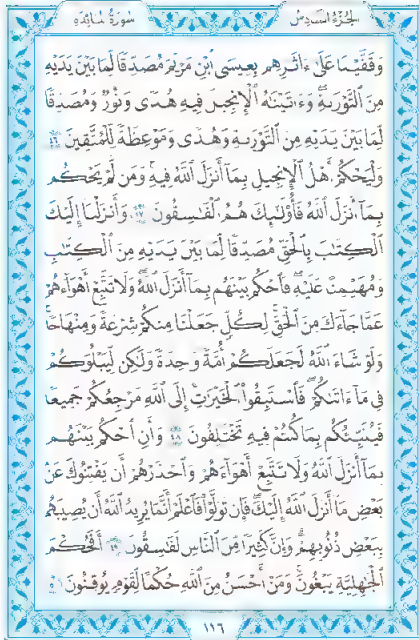 الجزء السادس
سورة مائده
وَقَفَّيْنَا عَلَىٰ ءَاثَٰرِهِم بِعِيسَى ٱبْنِ مَرْيَمَ مُصَدِّقًا لِّمَا بَيْنَ يَدَيْهِ
مِنَ ٱلتَّوْرَىٰةِ وَءَاتَيْنَٰهُ ٱلْإِنجِيلَ فِيهِ هُدًى وَنُورٌ وَمُصَدِّقًا
لِّمَا بَيْنَ يَدَيْهِ مِنَ ٱلتَّوْرَىٰةِ وَهُدًى وَمَوْعِظَةً لِّلْمُتَّقِينَ ٤٦
وَلْيَحْكُمْ أَهْلُ ٱلْإِنجِيلِ بِمَآ أَنزَلَ ٱللَّهُ فِيهِ وَمَن لَّمْ يَحْكُم
بِمَآ أَنزَلَ ٱللَّهُ فَأُو۟لَٰٓئِكَ هُمُ ٱلْفَٰسِقُونَ ٤٧ وَأَنزَلْنَآ إِلَيْكَ
ٱلْكِتَٰبَ بِٱلْحَقِّ مُصَدِّقًا لِّمَا بَيْنَ يَدَيْهِ مِنَ ٱلْكِتَٰبِ
وَمُهَيْمِنًا عَلَيْهِ فَٱحْكُم بَيْنَهُم بِمَآ أَنزَلَ ٱللَّهُ وَلَا تَتَّبِعْ أَهْوَآءَهُمْ
عَمَّا جَآءَكَ مِنَ ٱلْحَقِّ لِكُلٍّ جَعَلْنَا مِنكُمْ شِرْعَةً وَمِنْهَاجًا
وَلَوْ شَآءَ ٱللَّهُ لَجَعَلَكُمْ أُمَّةً وَٰحِدَةً وَلَٰكِن لِّيَبْلُوَكُمْ
فِى مَآ ءَاتَىٰكُمْ فَٱسْتَبِقُوا۟ ٱلْخَيْرَٰتِ إِلَى ٱللَّهِ مَرْجِعُكُمْ جَمِيعًا
فَيُنَبِّئُكُم بِمَا كُنتُمْ فِيهِ تَخْتَلِفُونَ ٤٨ وَأَنِ ٱحْكُم بَيْنَهُم
بِمَآ أَنزَلَ ٱللَّهُ وَلَا تَتَّبِعْ أَهْوَآءَهُمْ وَٱحْذَرْهُمْ أَن يَفْتِنُوكَ عَنۢ
بَعْضِ مَآ أَنزَلَ ٱللَّهُ إِلَيْكَ فَإِن تَوَلَّوْا۟ فَٱعْلَمْ أَنَّمَا يُرِيدُ ٱللَّهُ أَن يُصِيبَهُم
بِبَعْضِ ذُنُوبِهِمْ وَإِنَّ كَثِيرًا مِّنَ ٱلنَّاسِ لَفَٰسِقُونَ ٤٩ أَفَحُكْمَ
ٱلْجَٰهِلِيَّةِ يَبْغُونَ وَمَنْ أَحْسَنُ مِنَ ٱللَّهِ حُكْمًا لِّقَوْمٍ يُوقِنُونَ ٥٠
١١٦